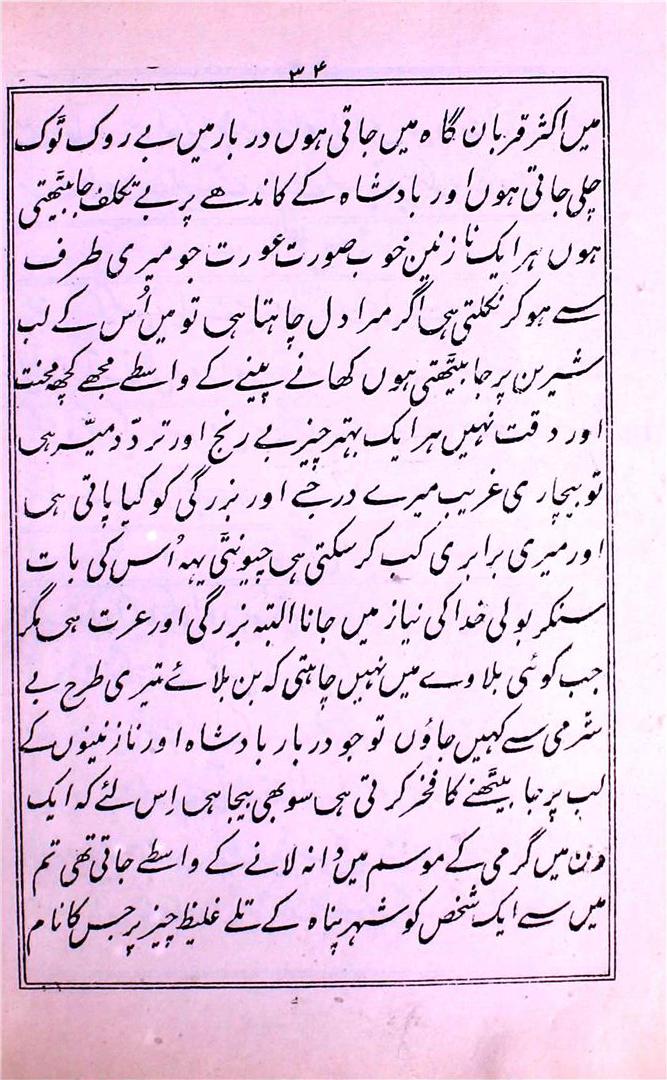 ۳۴
میں اکثر قربان گاہ میں جاتی ہوں دربار میں بے روک ٹوک
چلی جاتی ہوں اور بادشاہ کے کاندھے پر بے تکلف جا بیٹھتی
ہوں ہر ایک نازنین خوب صورت عورت جو میری طرف
سے ہو کر نکلتی ہی اگر مرا دل چاہتا ہی تو میں اُس کے لب
شیرین پر جا بیٹھتی ہوں کھانے پینے کے واسطے مجھے کچھ محنت
اور دقت نہیں ہر ایک بہتر چیز بے رنج اور تردّد میسّر ہی
تو بیچاری غریب میرے درجے اور بزرگی کو کیا پاتی ہی
اور میری برابری کب کر سکتی ہی چیونٹی یہہ اُس کی بات
سنکر بولی خدا کی نیاز میں جانا البتہ بزرگی اور عزت ہی مگر
جب کوئی بلاوے میں نہیں چاہتی کہ بن بلائے تیری طرح بے
شرمی سے کہیں جاؤں تو جو دربار بادشاہ اور نازنینوں کے
لب پر جا بیٹھنے کا فخر کرتی ہی سو بھی بیجا ہی اِس لئے کہ ایک
دن میں گرمی کے موسم میں دانہ لانے کے واسطے جاتی تھی تم
میں سے ایک شخص کو شہر پناہ کے تلے غلیظ چیز پر جس کا نام